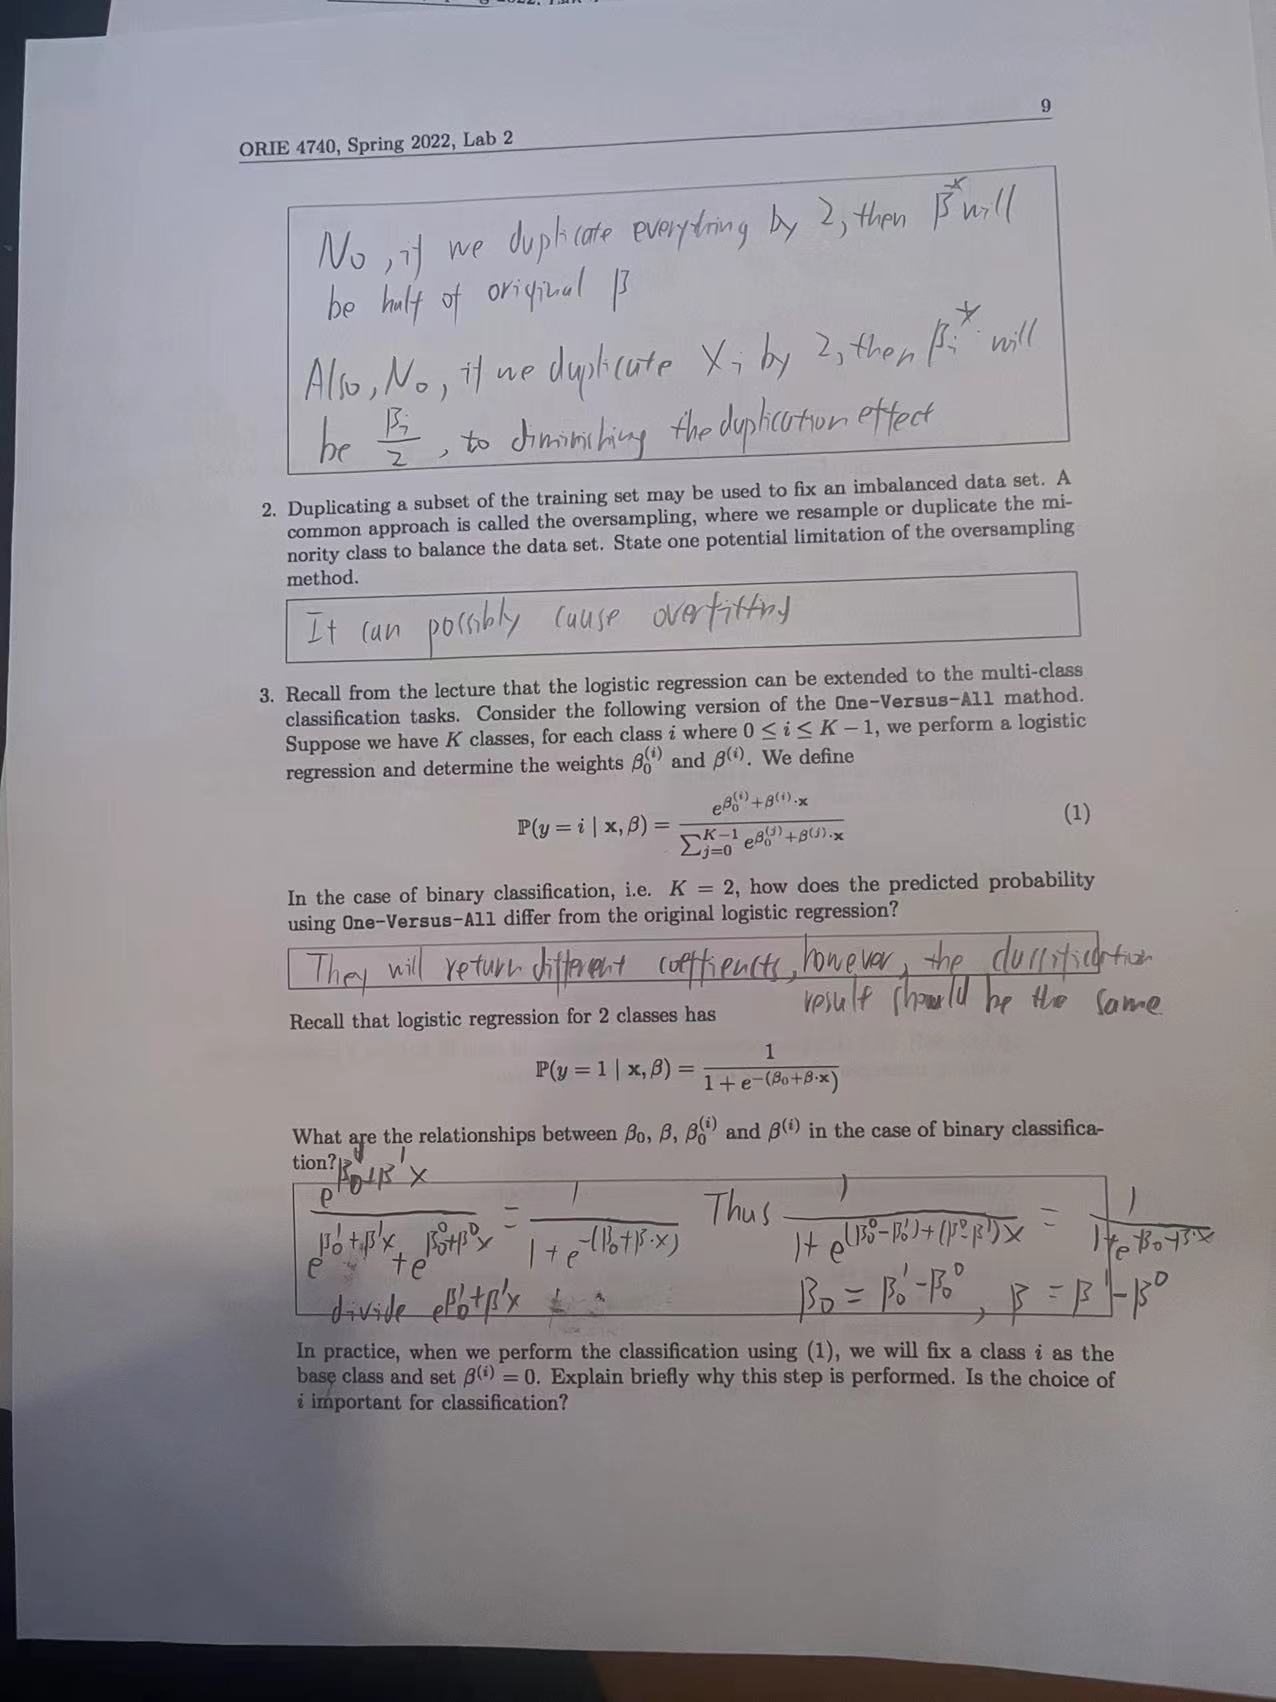 9
ORIE 4740, Spring 2022, Lab 2
No, if we duplicate everything by 2, then β* will
be half of original β
Also, No, if we duplicate Xi by 2, then βi* will
be βi/2, to diminishing the duplication effect
2. Duplicating a subset of the training set may be used to fix an imbalanced data set. A
common approach is called the oversampling, where we resample or duplicate the mi-
nority class to balance the data set. State one potential limitation of the oversampling
method.
It can possibly cause overfitting
3. Recall from the lecture that the logistic regression can be extended to the multi-class
classification tasks. Consider the following version of the One-Versus-All mathod.
Suppose we have K classes, for each class i where 0 ≤ i ≤ K − 1, we perform a logistic
regression and determine the weights β₀^(i) and β^(i). We define
ℙ(y = i | x, β) = e^(β₀^(i)+β^(i)·x) / ∑_{j=0}^{K−1} e^(β₀^(j)+β^(j)·x) (1)
In the case of binary classification, i.e. K = 2, how does the predicted probability
using One-Versus-All differ from the original logistic regression?
They will return different coeffients, however, the classification
result should be the same
Recall that logistic regression for 2 classes has
ℙ(y = 1 | x, β) = 1 / (1 + e^−(β₀+β·x))
What are the relationships between β₀, β, β₀^(i) and β^(i) in the case of binary classifica-
tion?
e^(β₀¹+β¹x) / (e^(β₀¹+β¹x) + e^(β₀⁰+β⁰x)) = 1 / (1 + e^−(β₀+β·x)) Thus 1 / (1 + e^((β₀⁰−β₀¹)+(β⁰−β¹)x)) = 1 / (1+e^(−β₀−β·x))
divide e^(β₀¹+β¹x) β₀ = β₀¹ − β₀⁰, β = β¹ − β⁰
In practice, when we perform the classification using (1), we will fix a class i as the
base class and set β^(i) = 0. Explain briefly why this step is performed. Is the choice of
i important for classification?